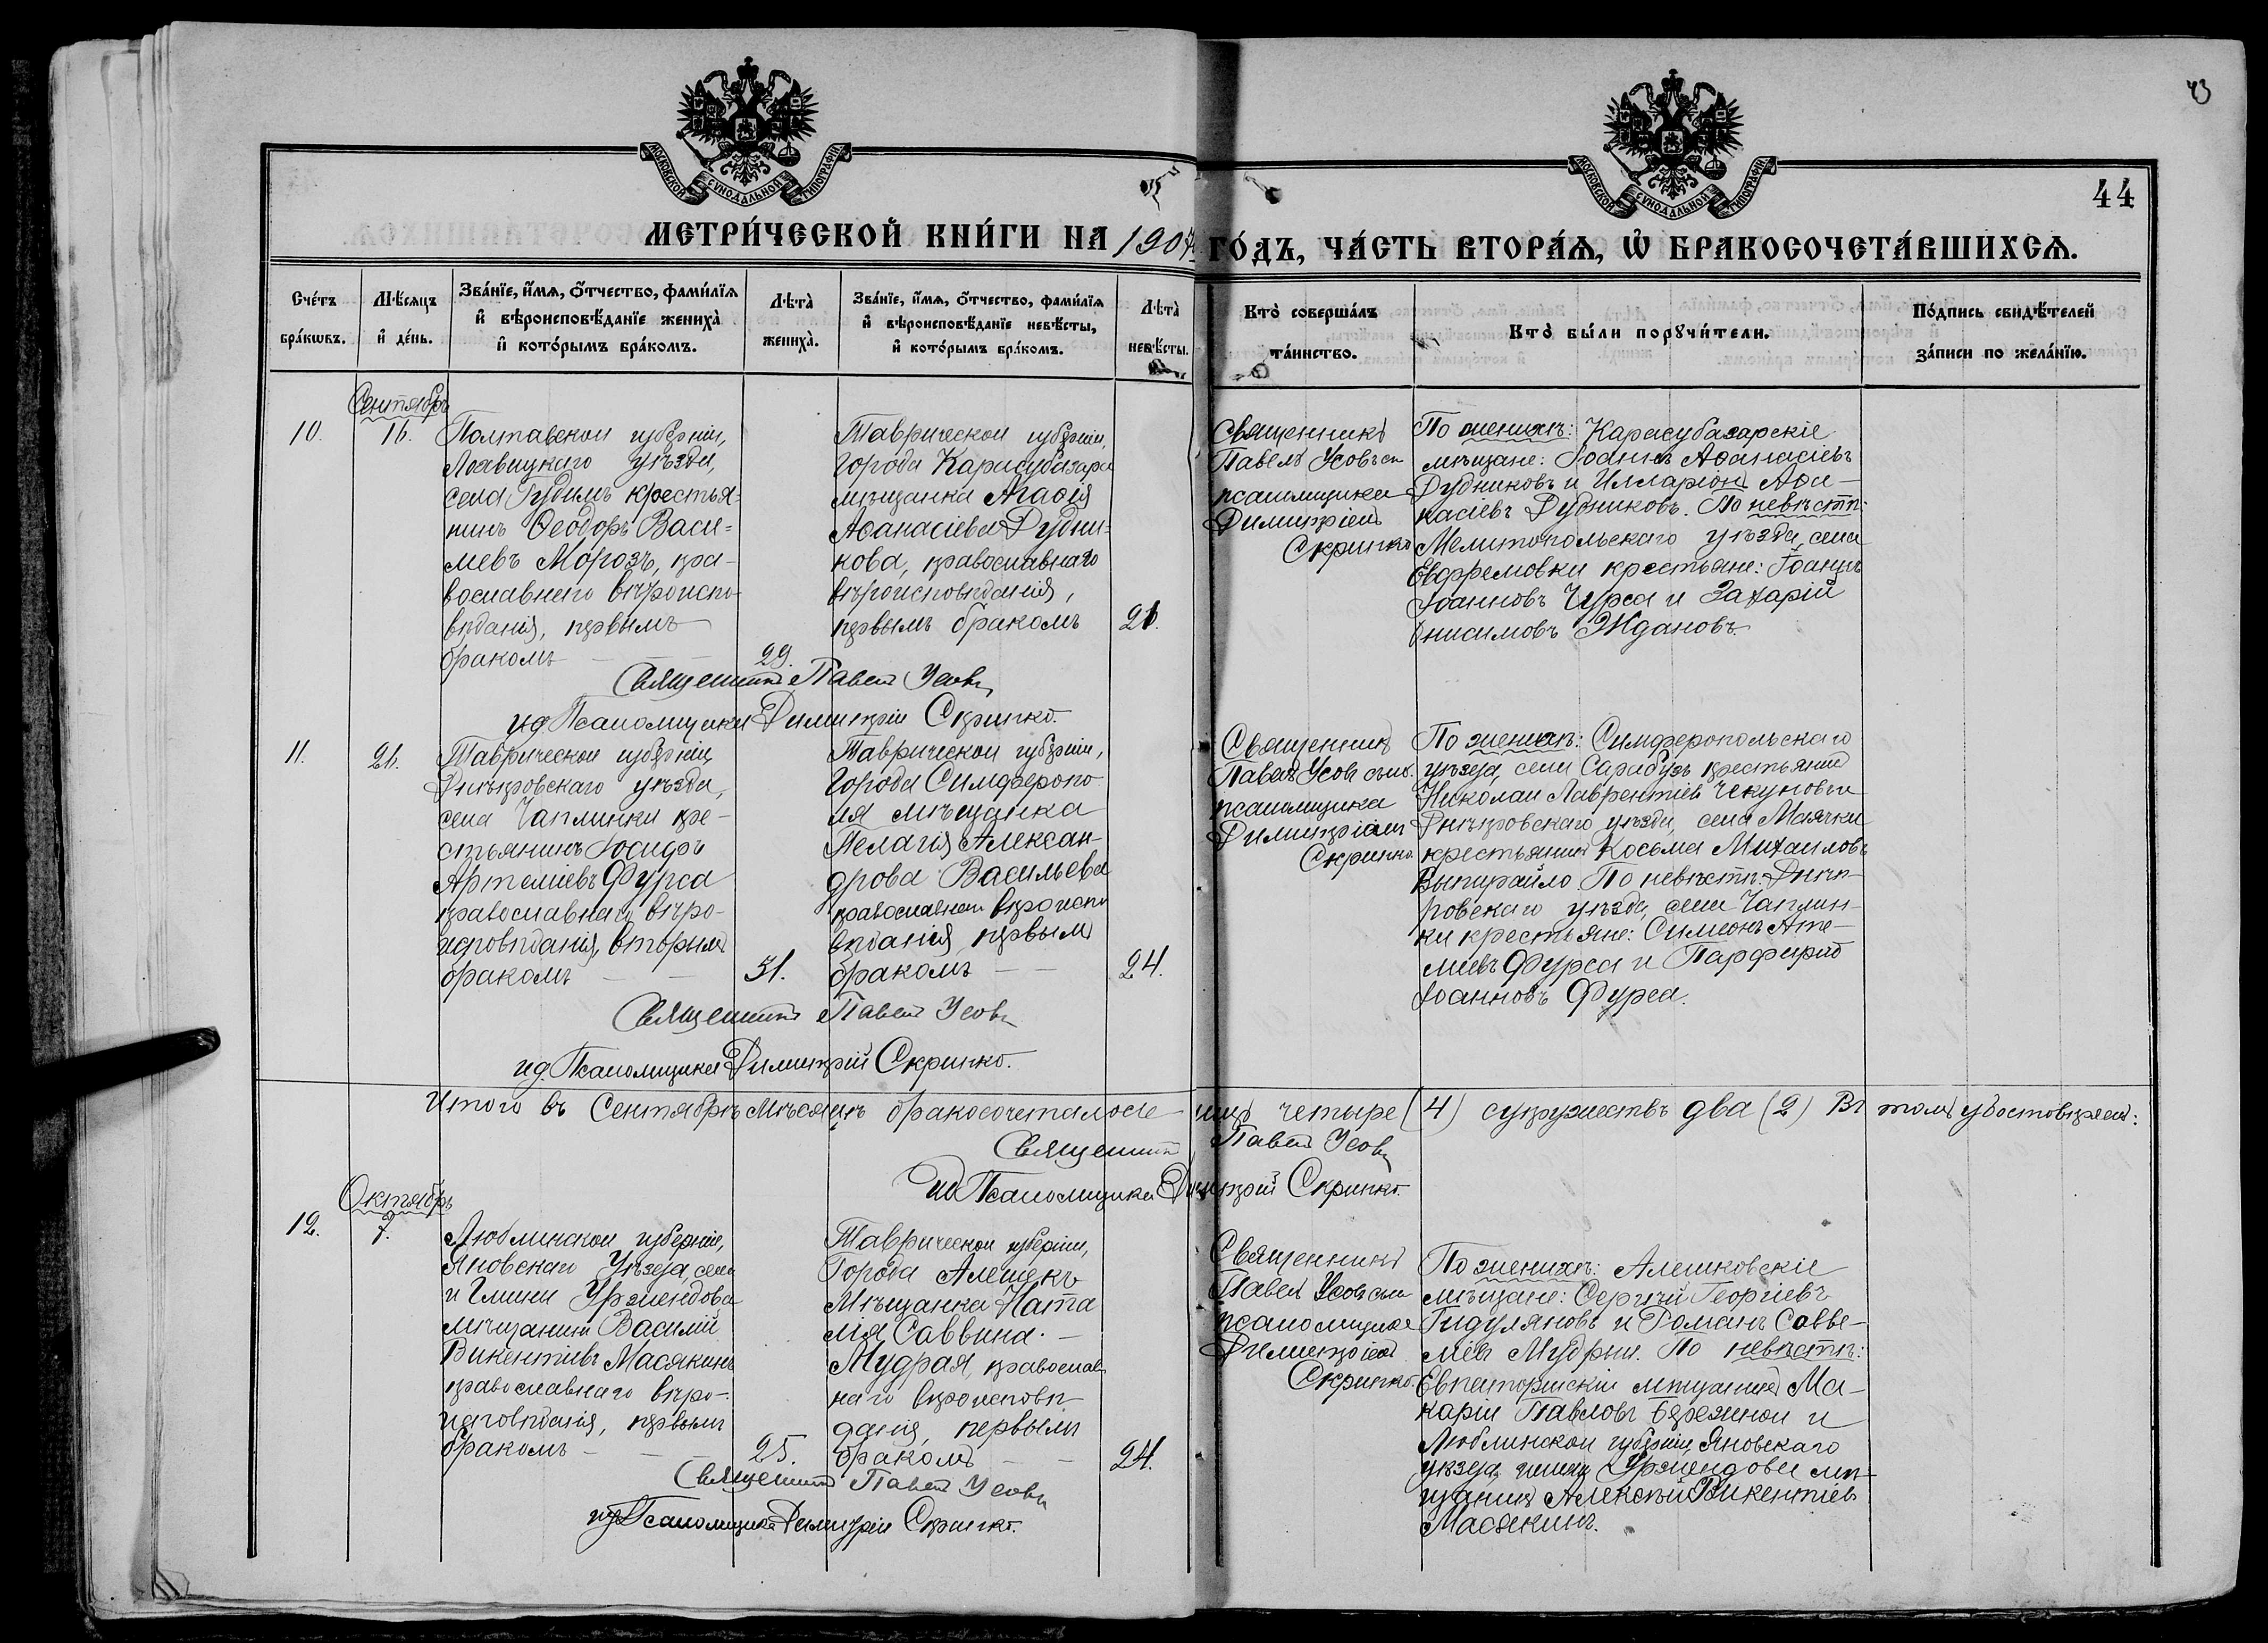 43
44
МОСКОВСКОЙ СѴНОДАЛЬНОЙ ТИПОГРАФІИ
МОСКОВСКОЙ СѴНОДАЛЬНОЙ ТИПОГРАФІИ
МЕТРИ́ЧЕСКОЙ КНИ́ГИ НА 1907 ГО́ДЪ, ЧА́СТЬ ВТОРА́Ѧ, Ѽ БРАКОСОЧЕТА́ВШИХСѦ.
Сче́тъ
бра́кѡвъ.
Мѣ́сяцъ
и҆ де́нь.
Зва́нїе, и҆́мѧ, о҆́тчество, фами́лїѧ
и҆ вѣроисповѣ́данїе жениха̀
и҆ кото́рымъ бра́комъ.
Лѣта̀
жениха̀.
Зва́нїе, и҆́мѧ, о҆́тчество, фами́лїѧ
и҆ вѣроисповѣ́данїе невѣ́сты,
и҆ кото́рымъ бра́комъ.
Лѣта̀
невѣ́сты.
Кто̀ соверша́лъ
та́инство.
Кто̀ бы́ли порꙋчи́тели.
По́дпись свидѣ́телей
за́писи по жела́нїю.
Сентябрь
10.
16.
Полтавской губерніи,
Лохвицкаго уѣзда,
села Гудимъ крестья-
нинъ Ѳеодоръ Васи-
льевъ Морозъ, пра-
вославнаго вѣроиспо-
вѣданія, первымъ
бракомъ
29.
Таврической губерніи,
города Карасубазара
мѣщанка Агаѳія
Аѳанасіева Дудни-
кова, православнаго
вѣроисповѣданія,
первымъ бракомъ
21.
Священникъ
Павелъ Усовъ съ
псаломщикомъ
Димитріемъ
Скрипко
По женихѣ: Карасубазарскіе
мѣщане: Іоаннъ Аѳанасіевъ
Дудниковъ и Илларіонъ Аѳа-
насіевъ Дудниковъ. По невѣстѣ:
Мелитопольскаго уѣзда, села
Ефремовки крестьяне: Іоаннъ
Іоанновъ Чурса и Захарій
Онисимовъ Ждановъ.
Священникъ Павелъ Усовъ
ид. Псаломщика Димитрій Скрипко.
11.
21.
Таврической губерніи,
Днѣпровскаго уѣзда,
села Чаплинки кре-
стьянинъ Іосифъ
Артеміевъ Фурса
православнаго вѣро-
исповѣданія, вторымъ
бракомъ
31.
Таврической губерніи,
города Симферопо
ля мѣщанка
Пелагія Алексан-
дрова Васильева
православнаго вѣроиспо
вѣданія первымъ
бракомъ
24.
Священникъ
Павелъ Усовъ съ
псаломщикомъ
Димитріемъ
Скрипко.
По женихѣ: Симферопольскаго
уѣзда, села Сарабузъ крестьянинъ
Николай Лаврентіевъ Чекуновъ и
Днѣпровскаго уѣзда, села Маячки
крестьянинъ Косьма Михаиловъ
Выпирайло. По невѣстѣ: Днѣп-
ровскаго уѣзда, села Чаплин-
ки крестьяне: Симеонъ Арте-
міевъ Фурса и Парфирій
Іоанновъ Фурса.
Священникъ Павелъ Усовъ
ид. Псаломщика Димитрій Скрипко.
Итого въ Сентябрѣ мѣсяцѣ бракосочеталось лицъ четыре (4) супружествъ два (2) Въ томъ удостовѣряемъ:
Священникъ Павелъ Усовъ
ид. Псаломщика Димитрій Скрипко.
Октябрь
12.
7.
Люблинской губерніи,
Яновскаго Уѣзда, села
и Гмины Уржендова
мѣщанинъ Василій
Викентіевъ Масякинъ
православнаго вѣро-
исповѣданія, первымъ
бракомъ
25.
Таврической губерніи,
Города Алешекъ
Мѣщанка Ната
лія Саввина
Мудрая, православ
наго вѣроисповѣ
данія, первымъ
бракомъ
24.
Священникъ
Павелъ Усовъ съ
псаломщикомъ
Димитріемъ
Скрипко.
По женихѣ: Алешковскіе
мѣщане: Сергѣй Георгіевъ
Гидуляновъ и Романъ Савве-
міевъ Мудрый. По невѣстѣ:
Евпаторійскій мѣщанинъ Ма-
карій Павловъ Бережной и
Люблинской губерніи Яновскаго
уѣзда, гмины Уржендова мѣ-
щанинъ Алексѣй Викентіевъ
Масякинъ.
Священникъ Павелъ Усовъ
ид. Псаломщика Димитрій Скрипко.